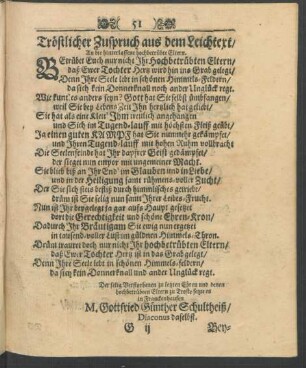 51
Tröstlicher Zuspruch aus dem Leichtext/
An die hinterlassene hochbetrübte Eltern.
BEtrübet Euch nur nicht Ihr Hochbetrübten Eltern/
daß Ewer Tochter Hertz wird hin ins Grab gelegt/
Denn Ihre Seele lebt in schönen Himmels-Feldern/
da sich kein Donnerknall noch ander Unglück regt.
Wie kunt es anders seyn? Gott hat Sie selbst
weil Sie bey Lebens Zeit Ihn hertzlich hat geliebt/
Sie hat als eine Klett Ihm treulich angehangen
und Sich im Tugend-lauff mit höchstem Fleiß geübt/
Ja einen guten KAMPF hat Sie nunmehr gekämpffet/
und Ihren Tugend-lauff mit hohen Ruhm vollbracht
Die Seelenfeinde hat Ihr dapffrer Geist gedämpffet/
der sieget nun empor mit ungemeiner Macht.
Sie blieb biß an Ihr End' im Glauben und in Liebe/
und in der Heiligung samt rühmens-voller Zucht/
Der Sie sich stets befliß durch himmlisches getriebe/
drüm ist Sie selig nun samt Ihrer Leibes-Frucht.
Nun ist Ihr beygelegt ja gar auffs Haupt gesetzet
dort die Gerechtigkeit und schöne Ehren-Kron/
Da durch Ihr Bräutigam Sie ewig nun ergetzet
in tausend-voller Lust im güldnen Himmels-Thron.
Drüm trauret doch nur nicht Ihr hochbetrübten Eltern/
daß Ewer Tochter Hertz ist in das Grab gelegt/
Denn Ihre Seele lebt in schönen Himmels-feldern/
da sich kein Donnerknall und ander Unglück regt.
Der selig Verstorbenen zu letzten Ehren und denen
hochbetrübten Eltern zu Troste setzt es
in Franckenhausen
M. Gottfried Günther Schultheiß/
Diaconus daselbst.
G ij
Bey-